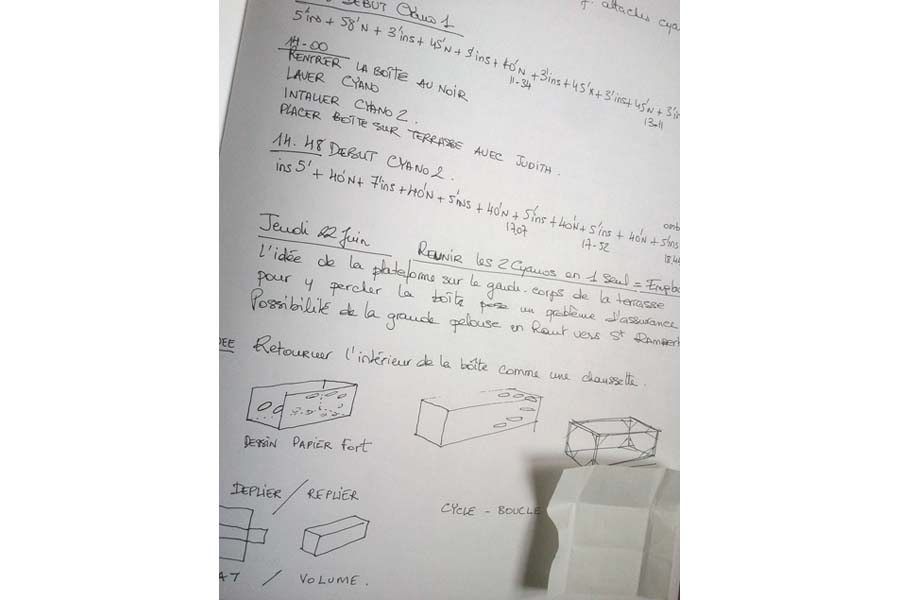 DEBUT Cyano 1
f. attaches cya
5'ins + 58'N + 3'ins + 45'N + 5'ins + 40'N + 3'ins + 45'N + 3'ins + 45'N + 3'in
11-34
13-11
14-00
RENTRER LA BOÎTE AU NOIR
LAVER CYANO
INTALLER CYANO 2.
PLACER BOÎTE SUR TERRASSE AVEC JUDITH.
14.48 DEBUT CYANO 2.
ins 5' + 40'N + 7'ins + 40'N + 5'ins + 40'N + 5'ins + 40'N + 5'ins + 40'N + 5'ins
1707
17-52
18.4
omb
Jeudi 22 Juin
REUNIR les 2 Cyanos en 1 seul =
L'idée de la plateforme sur le garde-corps de la terrasse
pour y percher la boîte pose un problème d'assurance
Possibilité de la grande pelouse en haut vers St RAMBERT
DEE Retourner l'intérieur de la boîte comme une chaussette.
DESSIN PAPIER Fort
DEPLIER / REPLIER
CYCLE - BOUCLE
AT / VOLUME.